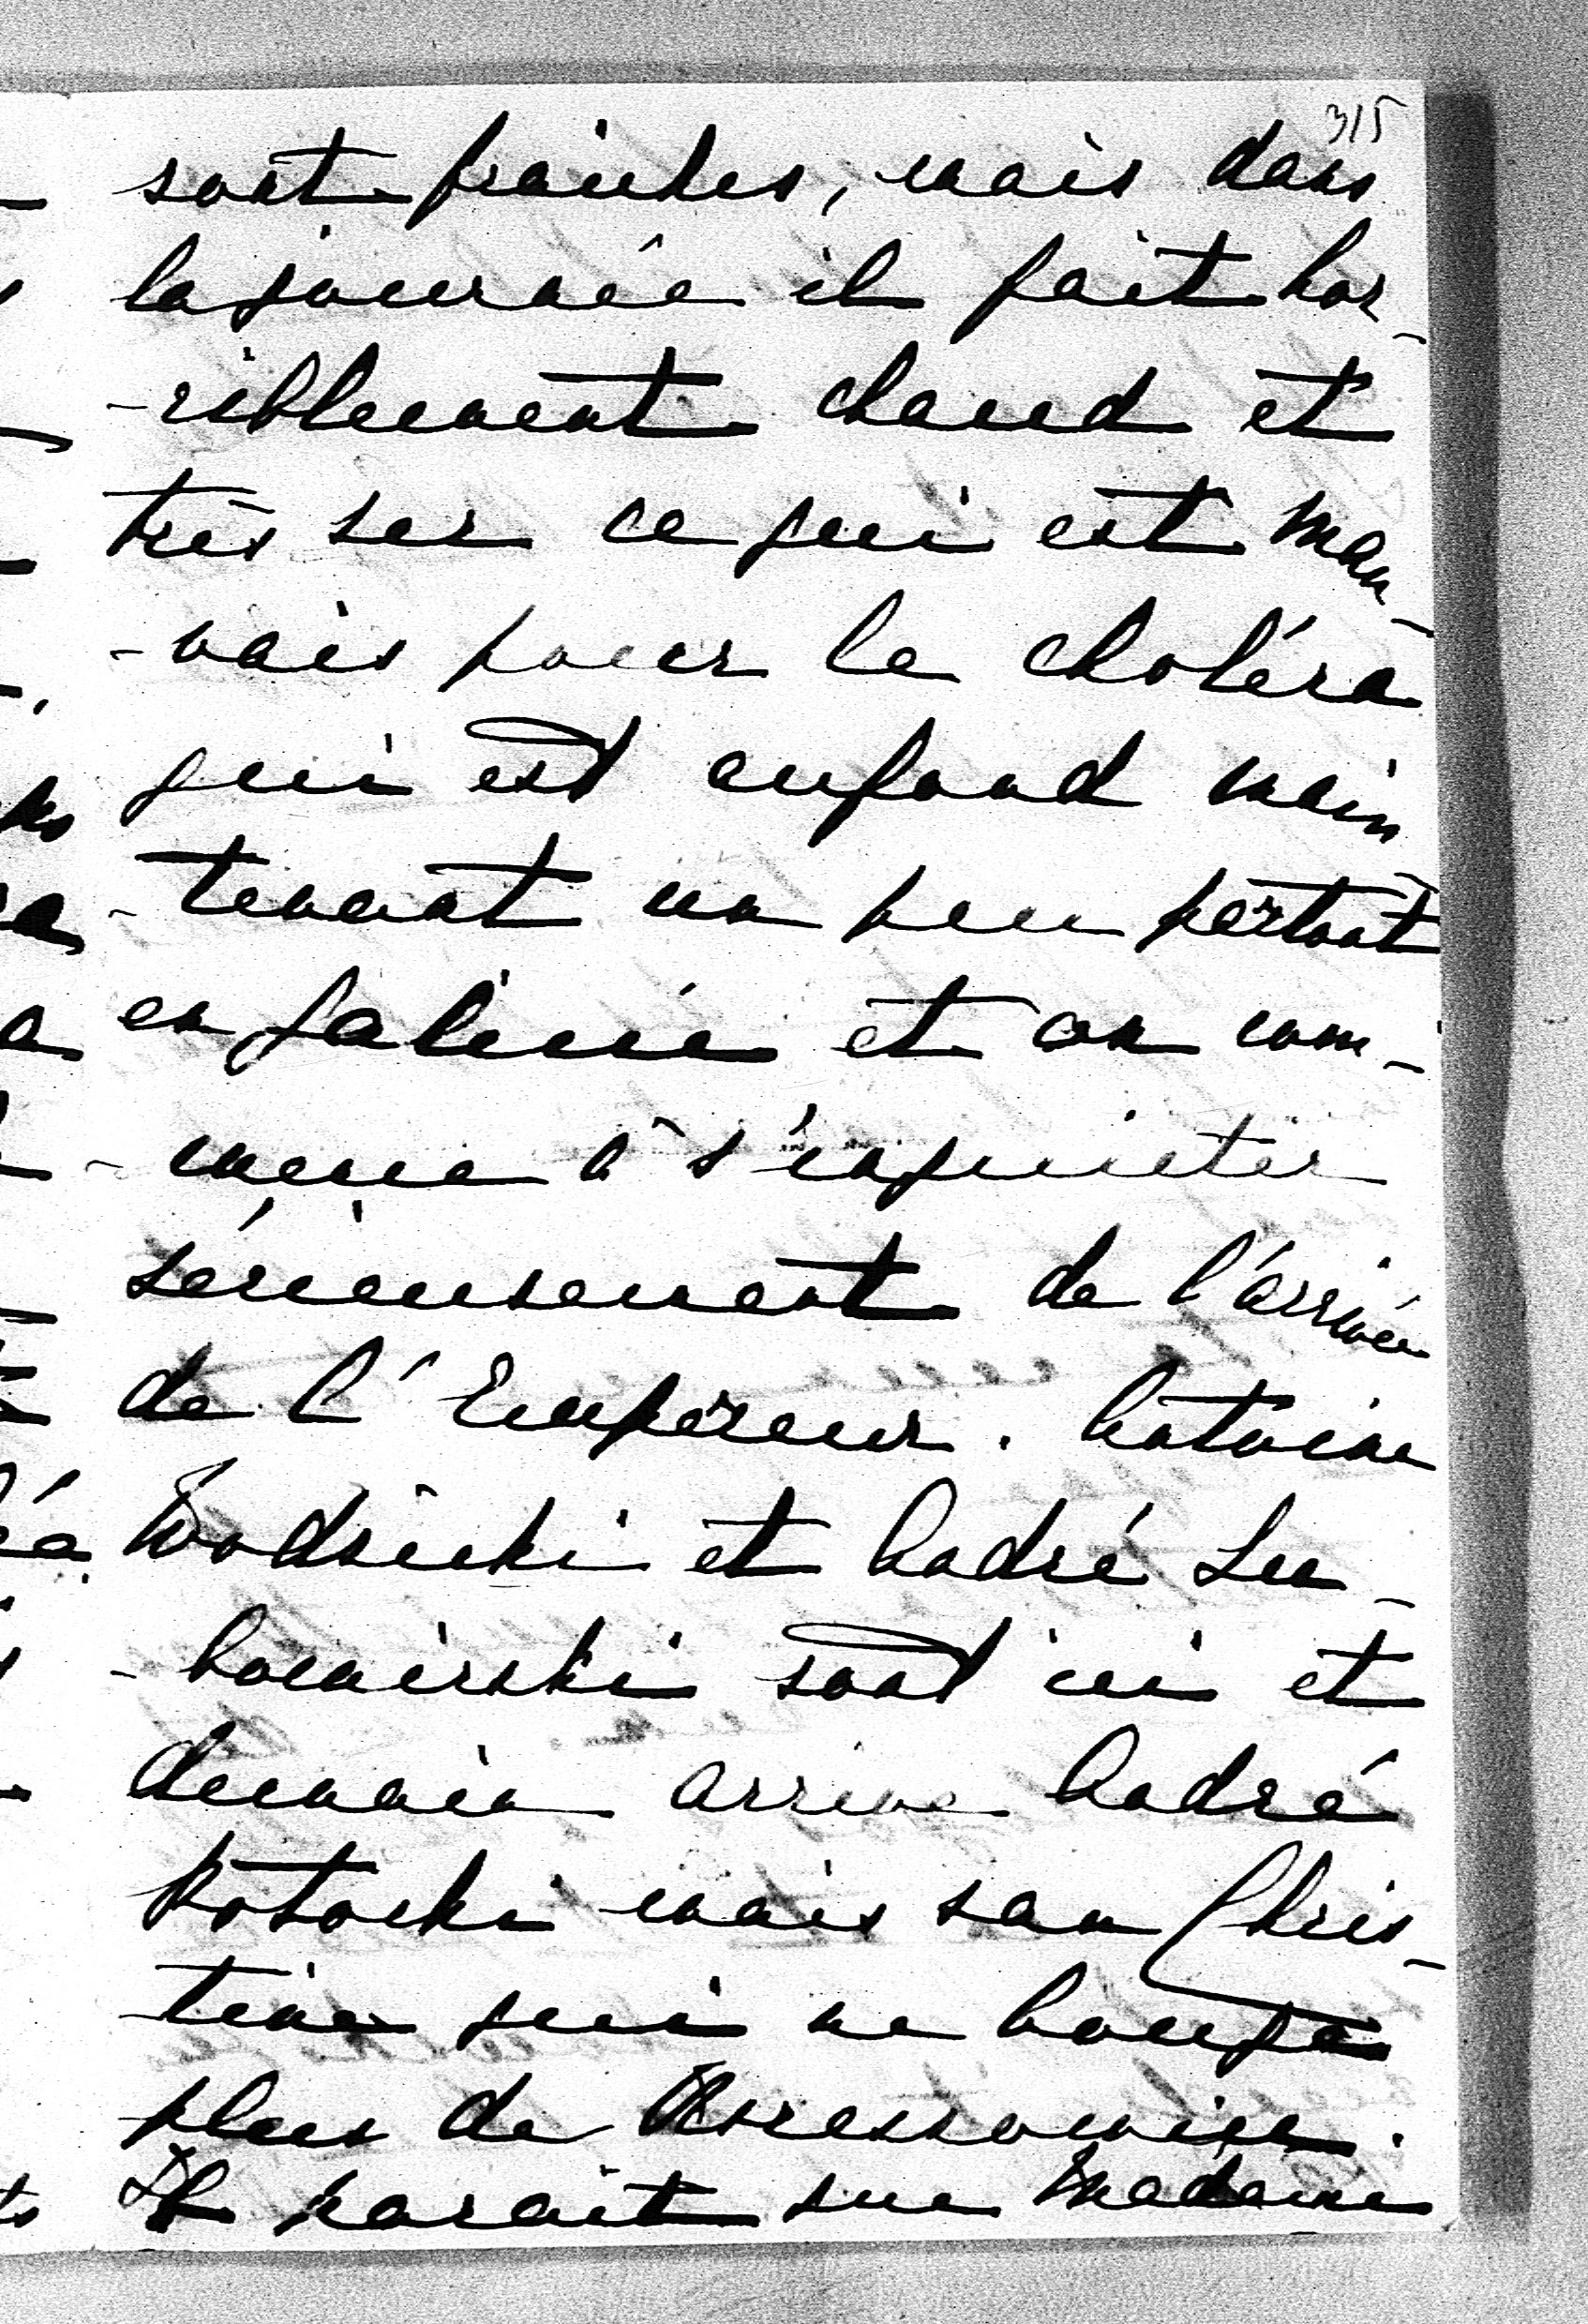 315
sont fraiches, mais dans
la journée il fait hor-
-riblement chaud et
très sec ce qui est mau-
-vais pour le choléra
qui est aufond main
-tenant un peu partout
en Galicie et on com-
-mence à s'inquieter
sérieusement de l'arrivée
de l'Empereur. Antoine
Wodzicki et André Lu-
-bomirski sont ici et
demain arrive André
Potocki mais san Chris-
tine qui ne bouge
plus de Krzeszowice.
Il parait que Madame